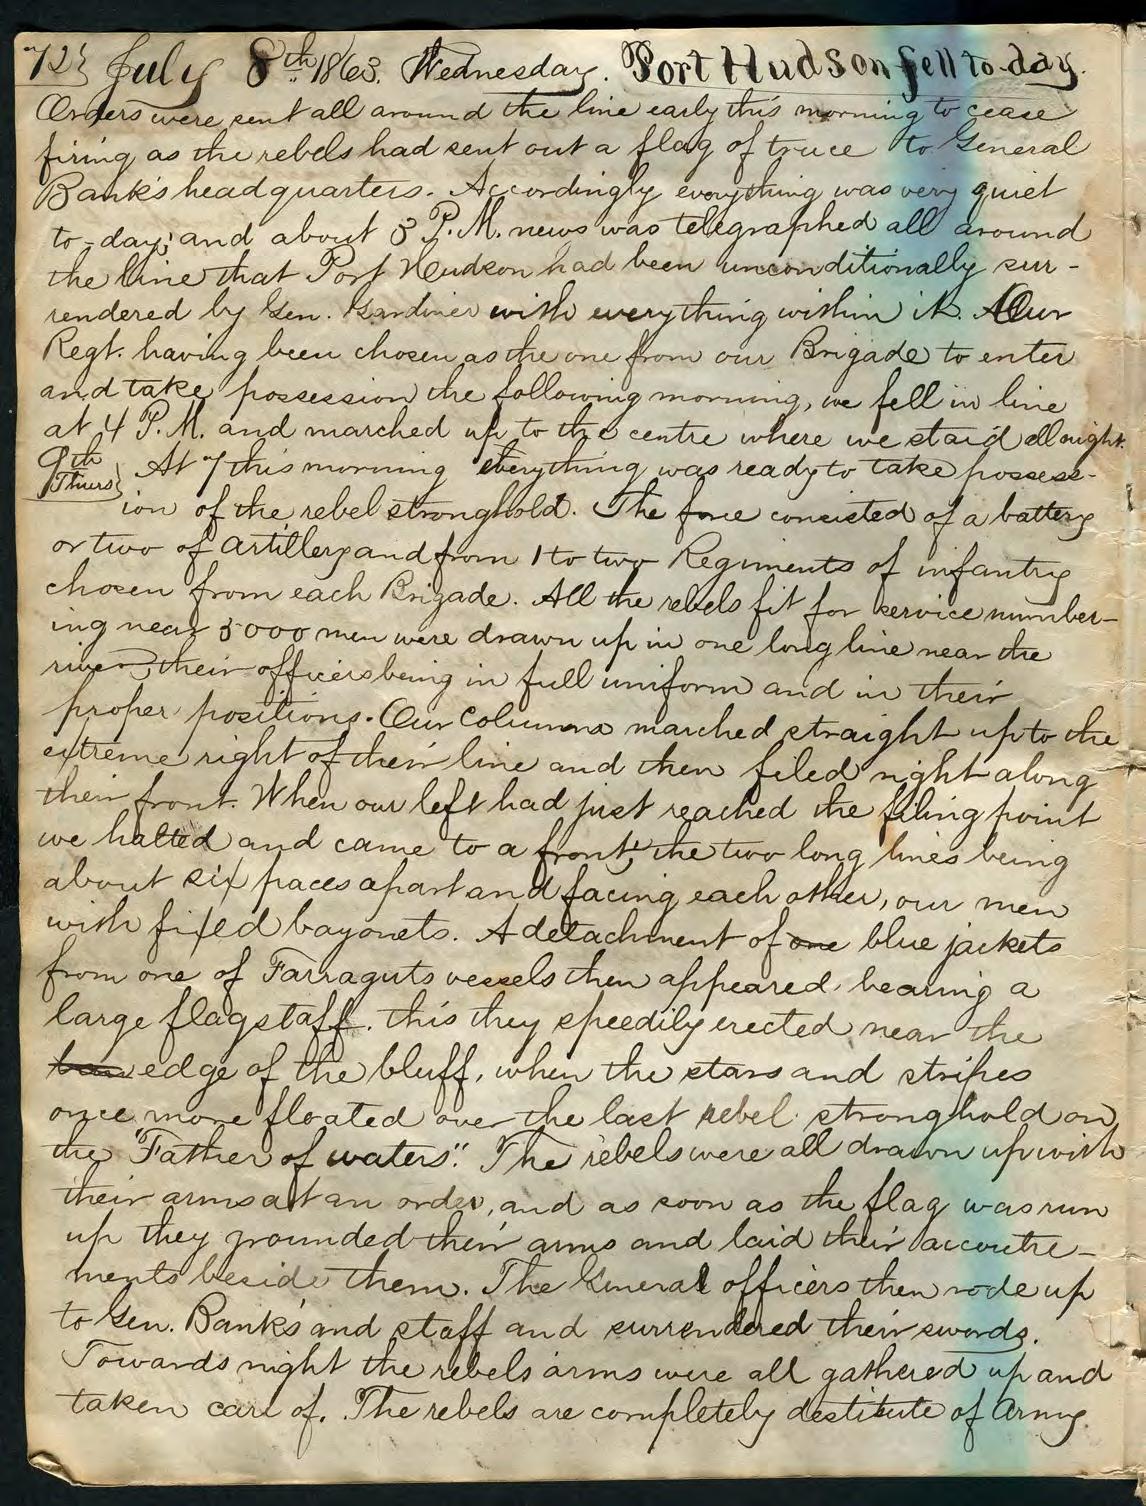 72} July 8th. 1863. Wednesday. Port Hudson fell to-day.
Orders were sent all around the line early this morning to cease
firing as the rebels had sent out a flag of truce to General
Bank's headquarters. Accordingly everything was very quiet
to-day; and about 3 P.M. news was telegraphed all around
the line that Port Hudson had been unconditionally sur-
rendered by Gen. Gardiner with everything within it. Our
Regt. having been chosen as the one from our Brigade to enter
and take possession the following morning, we fell in line
at 4 P.M. and marched up to the centre where we staid all night.
9th Thurs} At 7 this morning everything was ready to take possess-
ion of the rebel stronghold. The force consisted of a battery
or two of artillery and from 1 to two Regiments of infantry
chosen from each Brigade. All the rebels fit for service number-
ing near 5000 men were drawn up in one long line near the
river, their officers being in full uniform and in their
proper positions. Our columns marched straight up to the
extreme right of their line and then filed right along
their front. When our left had just reached the filing point
we halted and came to a front; the two long lines being
about six paces apart and facing each other, our men
with fixed bayonets. A detachment of one blue jackets
from one of Farraguts vessels then appeared, bearing a
large flagstaff. this they speedily erected near the
edge of the bluff, when the stars and stripes
once more floated over the last rebel stronghold on
the "Father of waters". The rebels were all drawn up with
their arms at an order, and as soon as the flag was run
up they grounded their arms and laid their accoutre-
ments beside them. The General officers then rode up
to Gen. Bank's and staff and surrendered their swords.
Towards night the rebels arms were all gathered up and
taken care of. The rebels are completely destitute of Army